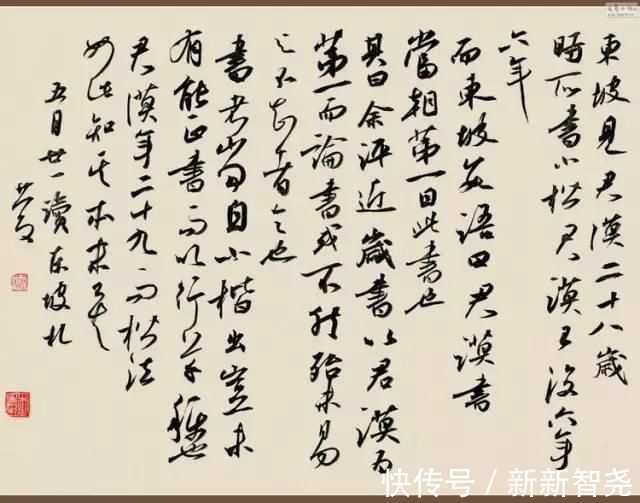 東坡見君謨二十八歲
時所書小楷君謨已沒六年
六年
而東坡
語曰君謨書
當朝第一因此書也
其曰余評近歲書以君謨為
第一而論書或不然殆未易
不知者言也
書者當自小楷出豈未
有能正書而以行草稱也
君謨年二十九而楷法
如此知其本末矣
五月廿一讀東坡札
快传号 / 新新智尧